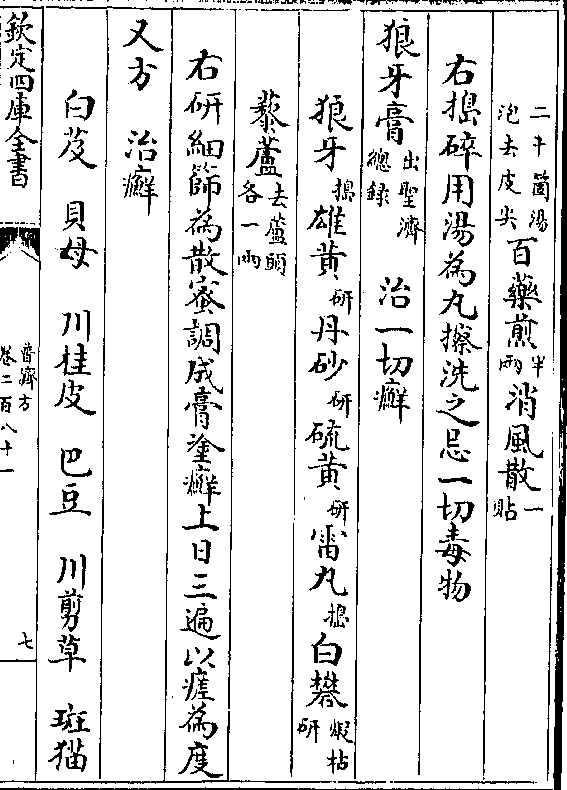 二十箇湯泡去皮尖百藥煎半兩消風散一貼
右搗碎用湯為丸擦洗之忌一切毒物
狼牙膏出聖濟總録 治一切癬
狼牙搗雄黄研丹砂研硫黄研雷丸搗白礬煅枯研
藜蘆去蘆頭各一兩
右研細篩為散蜜調成膏塗癬上日三遍以瘥為度
又方 治癬
白芨 貝母 川桂皮 巴豆 川剪草 斑猫
欽定四庫全書
普濟方
卷二百八十一
七